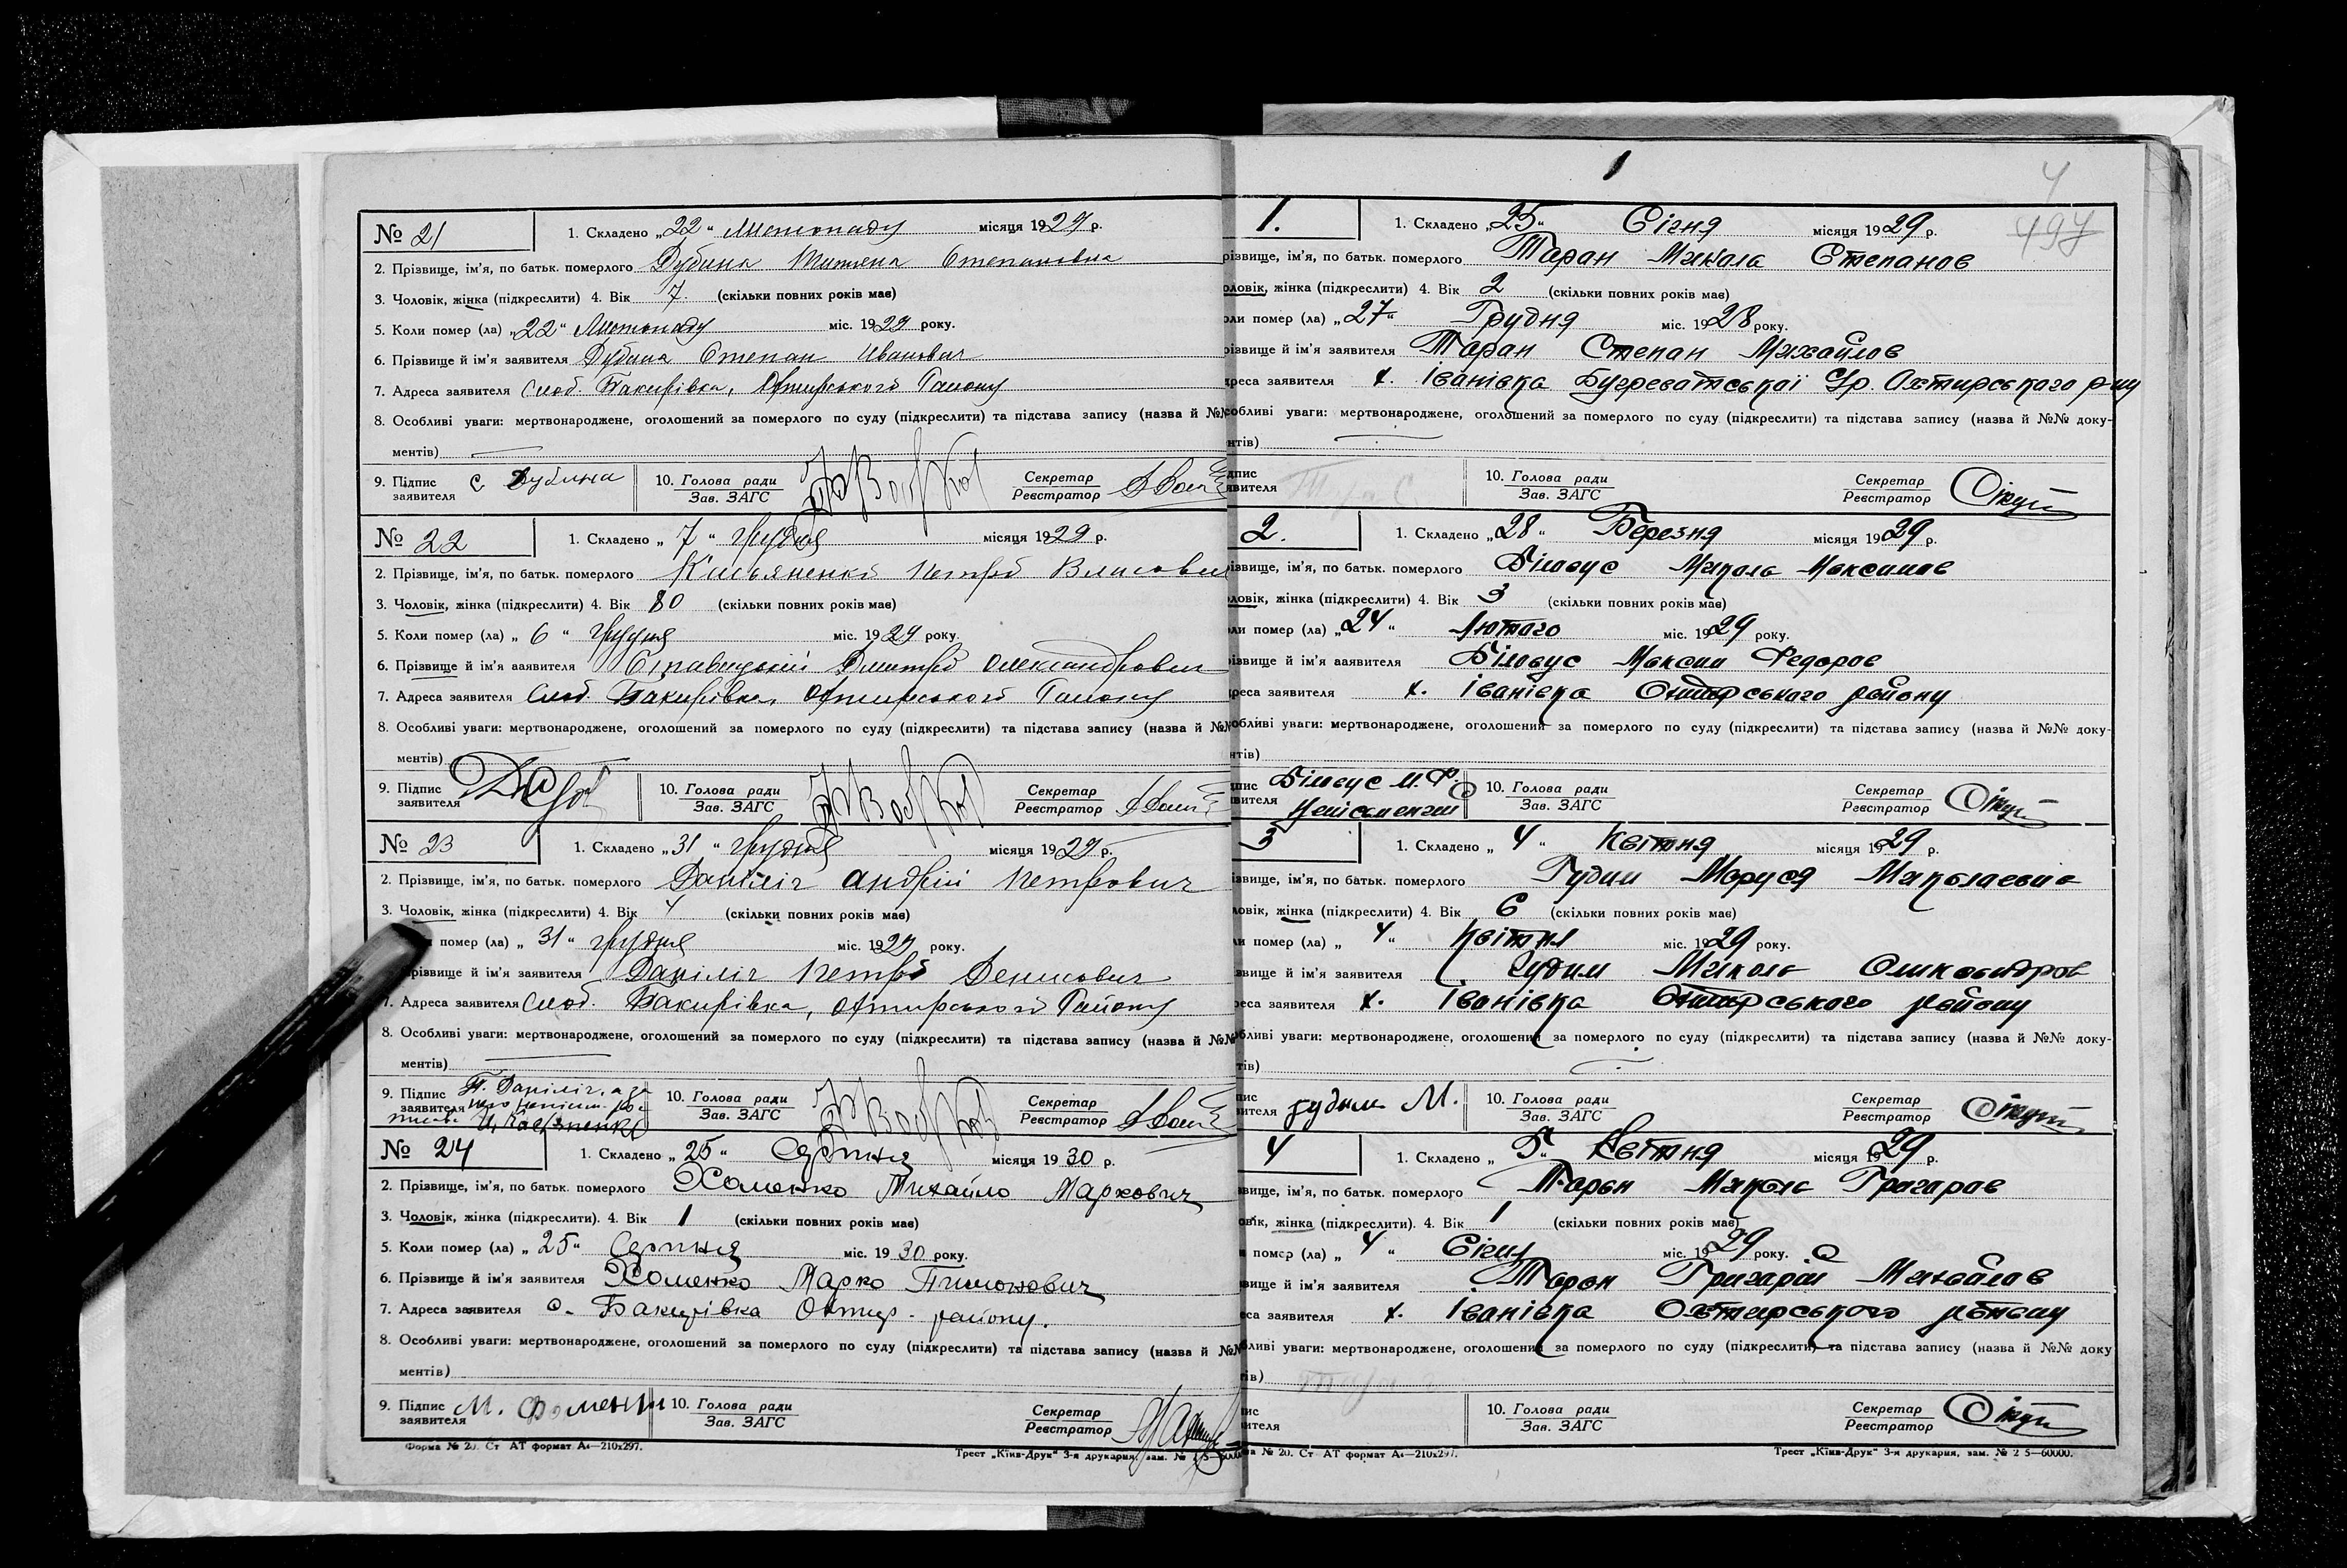 № 21
1. Складено „22“ Листопаду місяця 1929 р.
2. Прізвище, ім'я, по батьк. померлого Дубина Тетяна Степановна
3. Чоловік, жінка (підкреслити) 4. Вік 7. (скільки повних років має)
5. Коли помер (ла) „22“ Листопаду міс. 1929 року.
6. Прізвище й ім'я заявителя Дубина Степан Иванович
7. Адреса заявителя Слоб. Бакирівка, Охтирського Району
8. Особливі уваги: мертвонароджене, оголошений за померлого по суду (підкреслити) та підстава запису (назва й №№
ментів)
9. Підпис заявителя С Дубина 10. Голова ради Зав. ЗАГС Секретар Реєстратор
№ 22
1. Складено „7“ грудня місяця 1929 р.
2. Прізвище, ім'я, по батьк. померлого Касьяненко Петро Власович
3. Чоловік, жінка (підкреслити) 4. Вік 80 (скільки повних років має)
5. Коли помер (ла) „6“ грудня міс. 1929 року.
6. Прізвище й ім'я заявителя Дмитро Олександрович
7. Адреса заявителя Слоб. Бакирівка, Охтирського Району
8. Особливі уваги: мертвонароджене, оголошений за померлого по суду (підкреслити) та підстава запису (назва й №№
ментів)
9. Підпис заявителя 10. Голова ради Зав. ЗАГС Секретар Реєстратор
№ 23
1. Складено „31“ грудня місяця 1929 р.
2. Прізвище, ім'я, по батьк. померлого Даніліч Андрій Петрович
3. Чоловік, жінка (підкреслити) 4. Вік 4 (скільки повних років має)
помер (ла) „31“ грудня міс. 1929 року.
Прізвище й ім'я заявителя Даніліч Петро Денисович
7. Адреса заявителя Слоб. Бакирівка, Охтирського Району
8. Особливі уваги: мертвонароджене, оголошений за померлого по суду (підкреслити) та підстава запису (назва й №№
ментів)
9. Підпис заявителя П. Даніліч, а за 10. Голова ради Зав. ЗАГС Секретар Реєстратор
№ 24
1. Складено „25“ Серпня місяця 1930 р.
2. Прізвище, ім'я, по батьк. померлого Хоменко Михайло Маркович
3. Чоловік, жінка (підкреслити). 4. Вік 1 (скільки повних років має)
5. Коли помер (ла) „25“ Серпня міс. 1930 року.
6. Прізвище й ім'я заявителя Хоменко Марко Тимонович
7. Адреса заявителя с. Бакирівка Охтир. району.
8. Особливі уваги: мертвонароджене, оголошений за померлого по суду (підкреслити) та підстава запису (назва й №№
ментів)
9. Підпис заявителя М. Фоменко 10. Голова ради Зав. ЗАГС Секретар Реєстратор
Форма № 20. Ст АТ формат А4—210х297. Трест „Київ-Друк“ 3-я друкарня, зам. №
1
4
497
1.
1. Складено „25“ Січня місяця 1929 р.
різвище, ім'я, по батьк. померлого Таран Микола Степанов
оловік, жінка (підкреслити) 4. Вік 2 (скільки повних років має)
оли помер (ла) „27“ Грудня міс. 1928 року.
різвище й ім'я заявителя Таран Степан Михайлов
дреса заявителя х. Іванівка Бугреватської С/р. Охтирського р-ну
собливі уваги: мертвонароджене, оголошений за померлого по суду (підкреслити) та підстава запису (назва й №№ доку-
нтів)
дпис явителя 10. Голова ради Зав. ЗАГС Секретар Реєстратор
2.
1. Складено „28“ Березня місяця 1929 р.
ізвище, ім'я, по батьк. померлого Біловус Микола Максимов
ловік, жінка (підкреслити) 4. Вік 3 (скільки повних років має)
ли помер (ла) „24“ Лютого міс. 1929 року.
ізвище й ім'я заявителя Біловус Максим Федоров
реса заявителя х. Іванівка Охтирського району
обливі уваги: мертвонароджене, оголошений за померлого по суду (підкреслити) та підстава запису (назва й №№ доку-
нтів)
дпис явителя Біловус М. Ф. 10. Голова ради Зав. ЗАГС Секретар Реєстратор
3
1. Складено „4“ Квітня місяця 1929 р.
ізвище, ім'я, по батьк. померлого Гудим Маруся Миколаевна
ловік, жінка (підкреслити) 4. Вік 6 (скільки повних років має)
ли помер (ла) „4“ Квітня міс. 1929 року.
звище й ім'я заявителя Гудим Микола Олександров
реса заявителя х. Іванівка Охтирського району
бливі уваги: мертвонароджене, оголошений за померлого по суду (підкреслити) та підстава запису (назва й №№ доку-
тів)
пис вителя гудим М. 10. Голова ради Зав. ЗАГС Секретар Реєстратор
4
1. Складено „5“ Квітня місяця 1929 р.
звище, ім'я, по батьк. померлого Таран Микола Григоров
овік, жінка (підкреслити). 4. Вік 1 (скільки повних років має)
помер (ла) „4“ Січня міс. 1929 року.
вище й ім'я заявителя Таран Григорій Михайлов
еса заявителя х. Іванівка Охтирського району
ливі уваги: мертвонароджене, оголошений за померлого по суду (підкреслити) та підстава запису (назва й №№ доку
ів)
ис ителя 10. Голова ради Зав. ЗАГС Секретар Реєстратор
№ 20. Ст АТ формат А4—210х297. Трест „Київ-Друк“ 3-я друкарня, зам. № 2 5—60000.